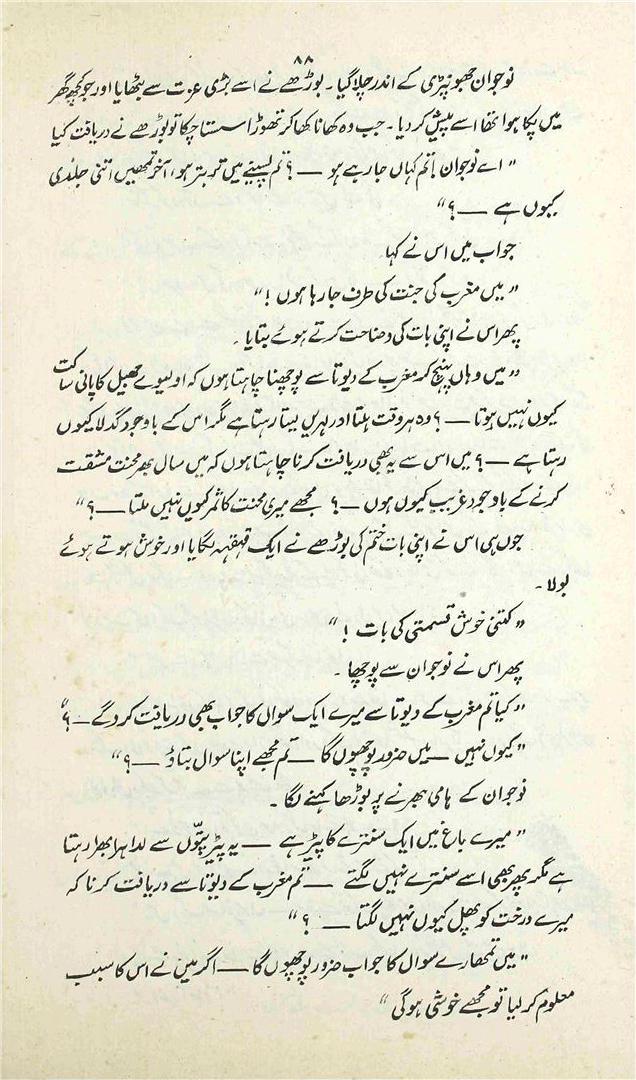 ۸۸
نوجوان جھونپڑی کے اندر چلا گیا ۔ بوڑھے نے اسے بڑی عزت سے بٹھایا اور جو کچھ گھر
میں پکا ہوا تھا اسے پیش کر دیا ۔ جب وہ کھانا کھا کر تھوڑا سستا چکا تو بوڑھے نے دریافت کیا
" اے نوجوان ! تم کہاں جا رہے ہو ـــ ؟ تم پسینے میں تر بتر ہو ، آخر تمھیں اتنی جلدی
کیوں ہے ـــ ؟ "
جواب میں اس نے کہا
" میں مغرب کی جنت کی طرف جا رہا ہوں ! "
پھر اس نے اپنی بات کی وضاحت کرتے ہوئے بتایا ۔
" میں وہاں پہنچ کر مغرب کے دیوتا سے پوچھنا چاہتا ہوں کہ اولیوے جھیل کا پانی ساکت
کیوں نہیں ہوتا ـــ ؟ وہ ہر وقت ہلتا اور لہریں لیتا رہتا ہے مگر اس کے باوجود گدلا کیوں
رہتا ہے ـــ ؟ میں اس سے یہ بھی دریافت کرنا چاہتا ہوں کہ میں سال بھر محنت مشقت
کرنے کے باوجود غریب کیوں ہوں ـــ ؟ مجھے میری محنت کا ثمر کیوں نہیں ملتا ـــ ؟ "
جوں ہی اس نے اپنی بات ختم کی بوڑھے نے ایک قہقہہ لگایا اور خوش ہوتے ہوئے
بولا ۔
" کتنی خوش قسمتی کی بات ! "
پھر اس نے نوجوان سے پوچھا ۔
" کیا تم مغرب کے دیوتا سے میرے ایک سوال کا جواب بھی دریافت کرو گے ـــ ؟ "
" کیوں نہیں ـــ میں ضرور پوچھوں گا ـــ تم مجھے اپنا سوال بتاؤ ـــ ؟ "
نوجوان کے ہامی بھرنے پر بوڑھا کہنے لگا ۔
" میرے باغ میں ایک سنترے کا پیڑ ہے ـــ یہ پیڑ پتّوں سے لدا ہرا بھرا رہتا
ہے مگر پھر بھی اسے سنترے نہیں لگتے ـــ تم مغرب کے دیوتا سے دریافت کرنا کہ
میرے درخت کو پھل کیوں نہیں لگتا ـــ ؟ "
" میں تمھارے سوال کا جواب ضرور پوچھوں گا ـــ اگر میں نے اس کا سبب
معلوم کر لیا تو مجھے خوشی ہوگی "